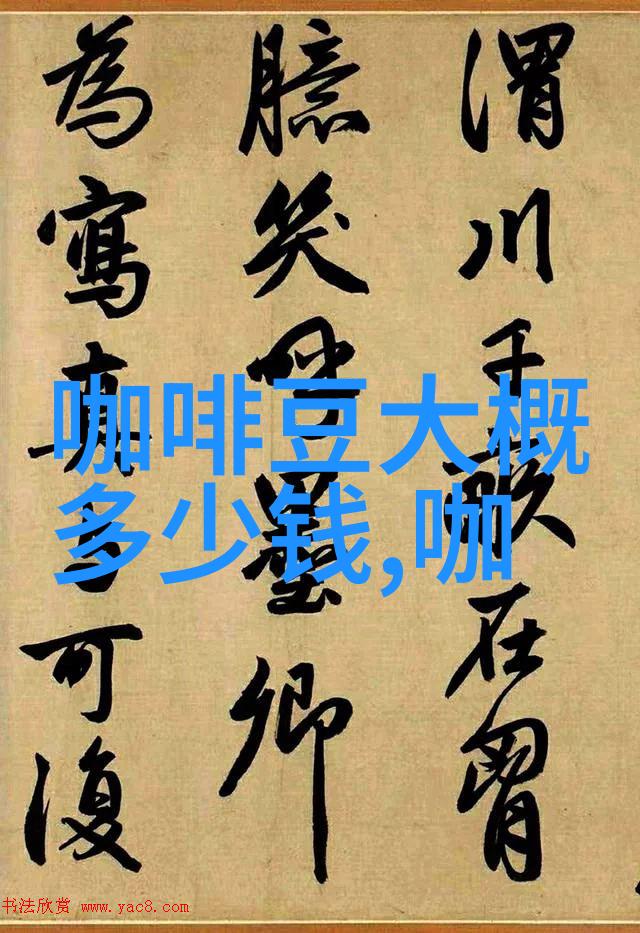 渭川千畝在胷
臆笑呼墨卿
為寫真与可復
咖啡豆大概
多少钱,咖
书法欣赏 www.yac8.com